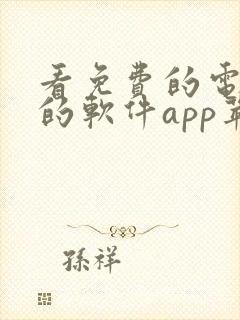 看免費的電
的軟件app
孫祥